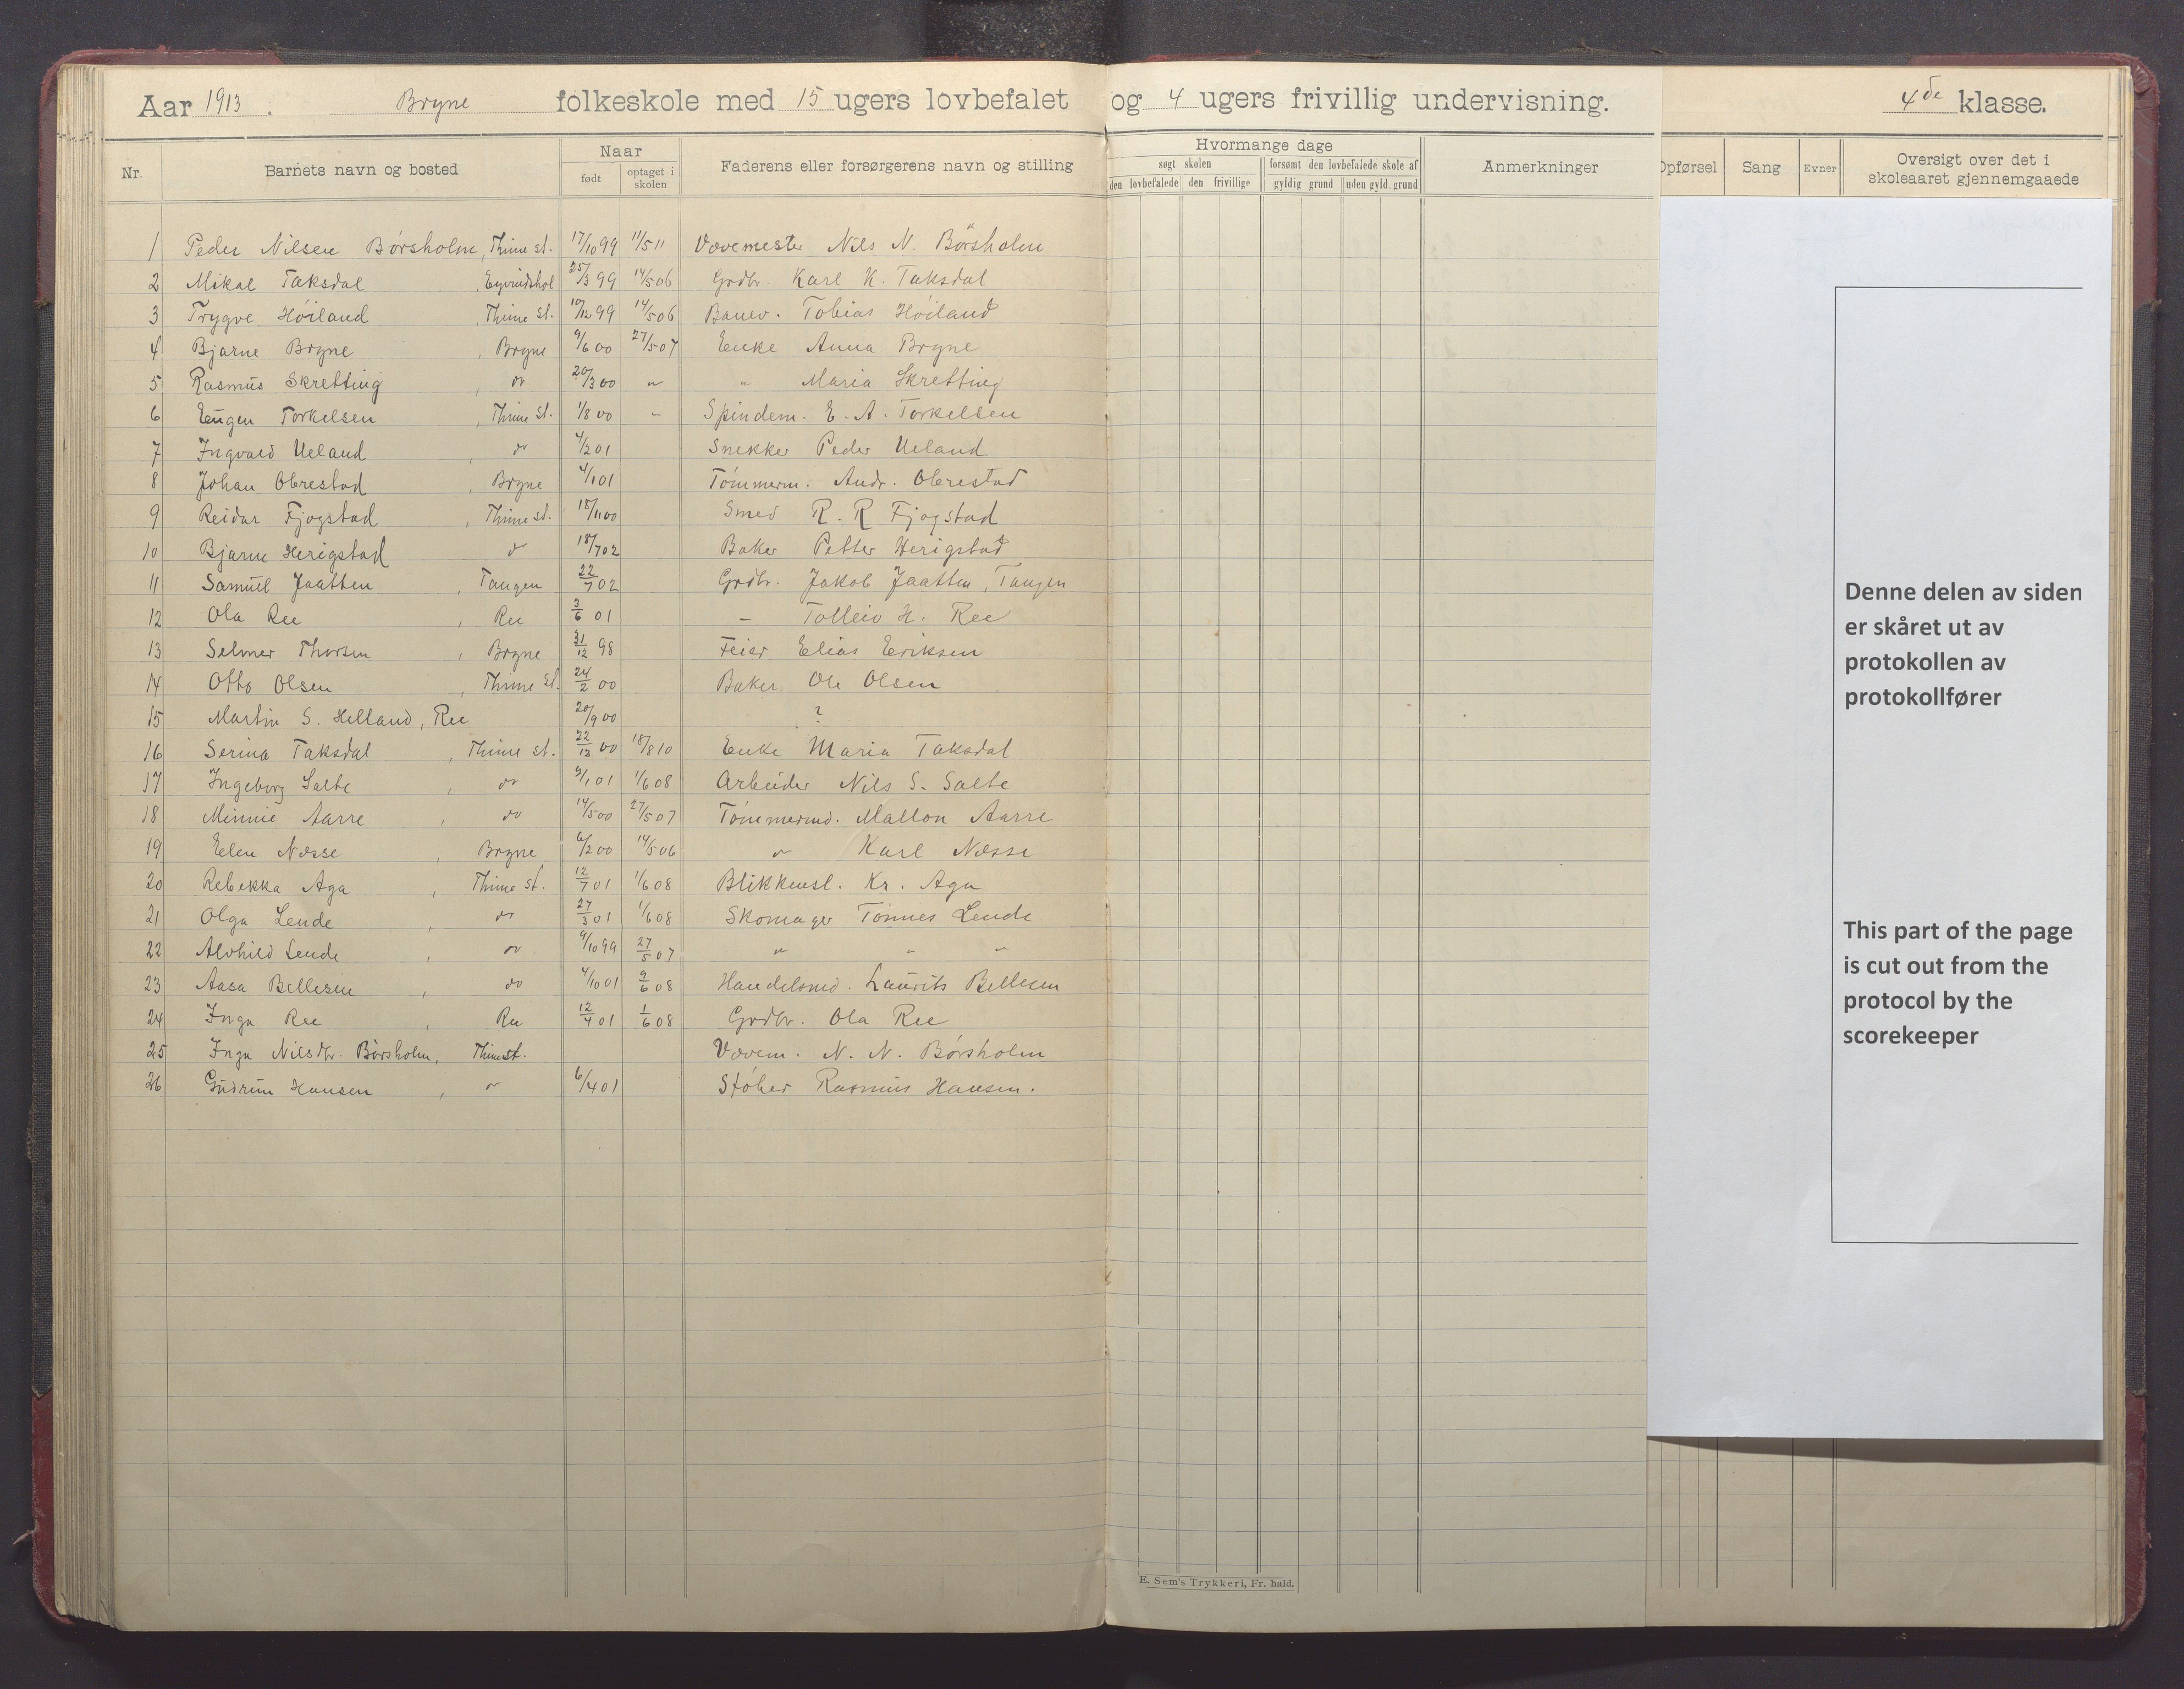 Aar 1913. Bryne folkeskole med 15 ugers lovbefalet og 4 ugers frivillig undervisning. 4de klasse.
Nr. Barnets navn og bosted Naar født optaget i skolen Faderens eller forsørgerens navn og stilling
Hvormange dage
søgt skolen forsømt den lovbefalede skole af
den lovbefalede den frivillige gyldig grund uden gyld. grund
Anmerkninger Opførsel Sang Evner Oversigt over det i skoleaaret gjennemgaaede
1 Peder Nilsen Börsholm, Thime st. 17/10 99 11/5 11 Vævemester Nils N. Börsholm
2 Mikal Taksdal, Eyvindshol 25/3 99 14/5 06 Grdbr. Karl K. Taksdal
3 Trygve Höiland, Thime St. 10/12 99 14/5 06 Banev. Tobias Höiland
4 Bjarne Bryne, Bryne 9/6 00 27/5 07 Enke Anna Bryne
5 Rasmus Skretting, do 20/3 00 " " Maria Skretting
6 Eugen Torkelsen, Thime St. 1/8 00 - Spindem. E. A. Torkelsen
7 Ingvald Ueland, do 4/2 01 Snekker Peder Ueland
8 Johan Obrestad, Bryne 4/1 01 Tömmerm. Andr. Obrestad
9 Reidar Fjogstad, Thime st. 18/11 00 Smed R. R Fjogstad
10 Bjarne Herigstad do 18/7 02 Baker Petter Herigstad
11 Samuel Jaatten, Tangen 22/7 02 Grdbr. Jakob Jaatten, Tangen
12 Ola Ree, Ree 3/6 01 - Tolleiv H. Ree
13 Selmer Thorsen, Bryne 31/12 98 Feier Elias Eriksen
14 Otto Olsen, Thime St. 24/2 00 Baker Ole Olsen
15 Martin S. Helland, Ree 20/9 00 ?
16 Serina Taksdal, Thime st. 22/12 00 18/8 10 Enke Maria Taksdal
17 Ingeborg Salte, do 9/1 01 1/6 08 Arbeider Nils S. Salte
18 Minnie Aarre, do 14/5 00 27/5 07 Tömmermd. Mallon Aarre
19 Elen Næsse, Bryne 6/2 00 14/5 06 " Karl Næsse
20 Rebekka Aga, Thime st. 12/7 01 1/6 08 Blikkensl. Kr. Aga
21 Olga Lende, do 27/3 01 1/6 08 Skomager Tönnes Lende
22 Alvhild Lende, do 9/10 99 27/5 07 " " "
23 Aasa Bellesen, do 4/10 01 9/6 08 Handelsmd. Laurits Bellesen
24 Inga Ree, Ree 12/4 01 1/6 08 Grdbr. Ola Ree
25 Inga Nilsdtr. Börsholm, Thimest. Vævem. N. N. Börsholm
26 Gudrun Hansen, " 6/4 01 Stöber Rasmus Hansen.
E. Sem's Trykkeri, Fr. hald.
Denne delen av siden
er skåret ut av
protokollen av
protokollfører
This part of the page
is cut out from the
protocol by the
scorekeeper